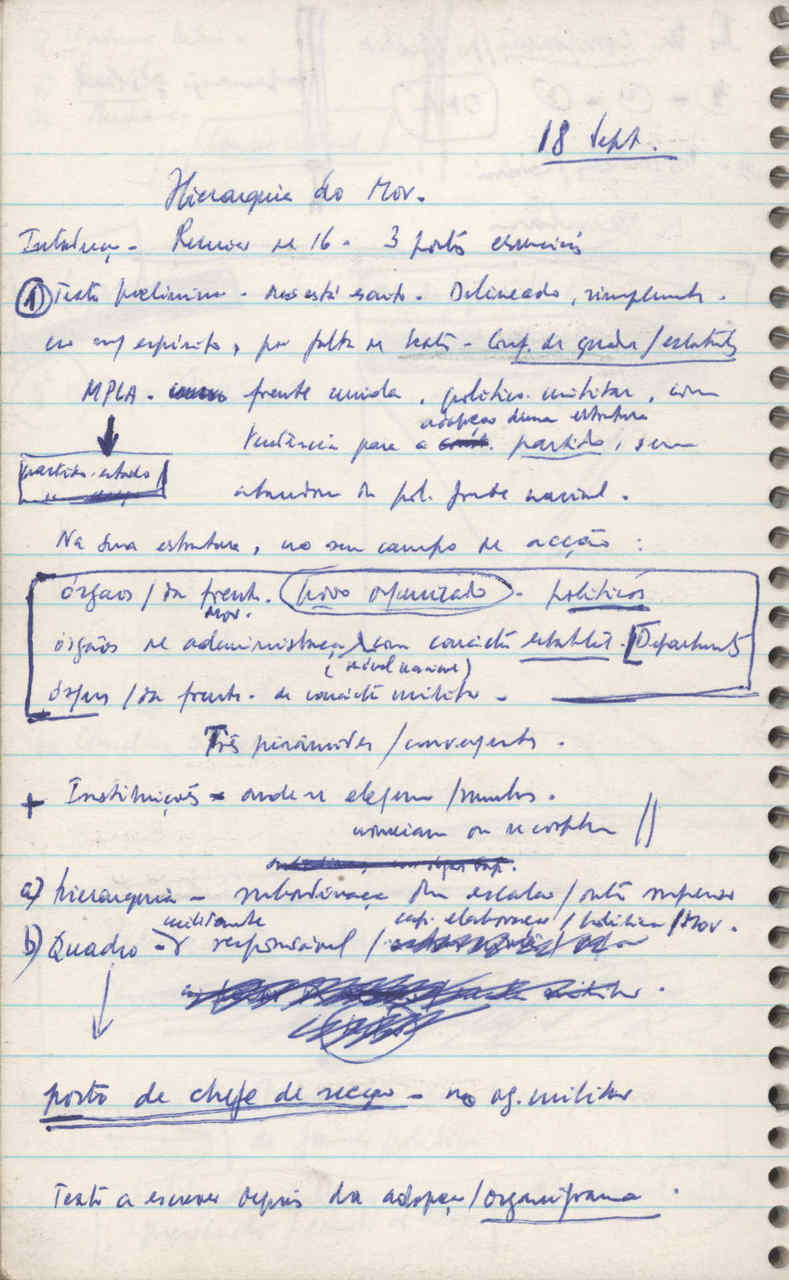 18 Sept.
Hierarquia do Mov.
Introduç. - Reunião de 16 - 3 pontos essenciais
① Texto preliminar - não está escrito. Delineado, simplesmente.
no m/ espírito, por falta de texto - Conf. de quadros/estatutos
MPLA - frente unida, político-militar, com
adopção duma estrutura
tendência para a partido, sem
partido-estado
abandono da pol. frente nacional.
Na sua estrutura, no seu campo de acção:
órgãos / da frente. (povo organizado) - políticos
Mov.
órgãos de administração com carácter estatal. [Departamentos
(nível nacional)
órgãos / da frente - de carácter militar -
Três pirâmides / convergentes.
+ Instituições - onde se elegem /
nomeiam ou se cooptam //
a) hierarquia - subordinação dum escalão / outro superior
militante cap. elaboração / política / Mov.
b) Quadro - responsável /
posto de chefe de secção - no og. militar
Texto a escrever depois da adopção / organigrama.